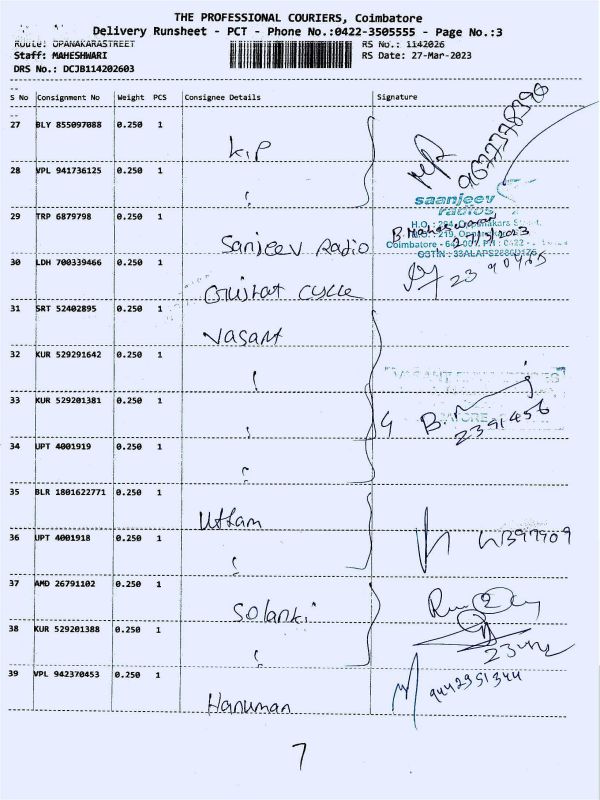 THE PROFESSIONAL COURIERS, Coimbatore
Delivery Runsheet - PCT - Phone No.:0422-3505555 - Page No.:3
Route: OPANAKARASTREET RS No.: 1142026
Staff: MAHESHWARI RS Date: 27-Mar-2023
DRS No.: DCJB114202603
S No Consignment No Weight PCS Consignee Details Signature
27 BLY 855097088 0.250 1
K.P
9677378390
28 VPL 941736125 0.250 1
saanjeev
radios
29 TRP 6879798 0.250 1
B Maheswaran
27/3/2023
Sanjeev Radio
30 LDH 700339466 0.250 1
Gujrat cycle
31 SRT 52402895 0.250 1
Vasant
32 KUR 529291642 0.250 1
33 KUR 529201381 0.250 1
4
2391456
34 UPT 4001919 0.250 1
35 BLR 1801622771 0.250 1
Uttam
36 UPT 4001918 0.250 1
37 AMD 26791102 0.250 1
Solanki
38 KUR 529201388 0.250 1
39 VPL 942370453 0.250 1
9442351344
Hanuman
7